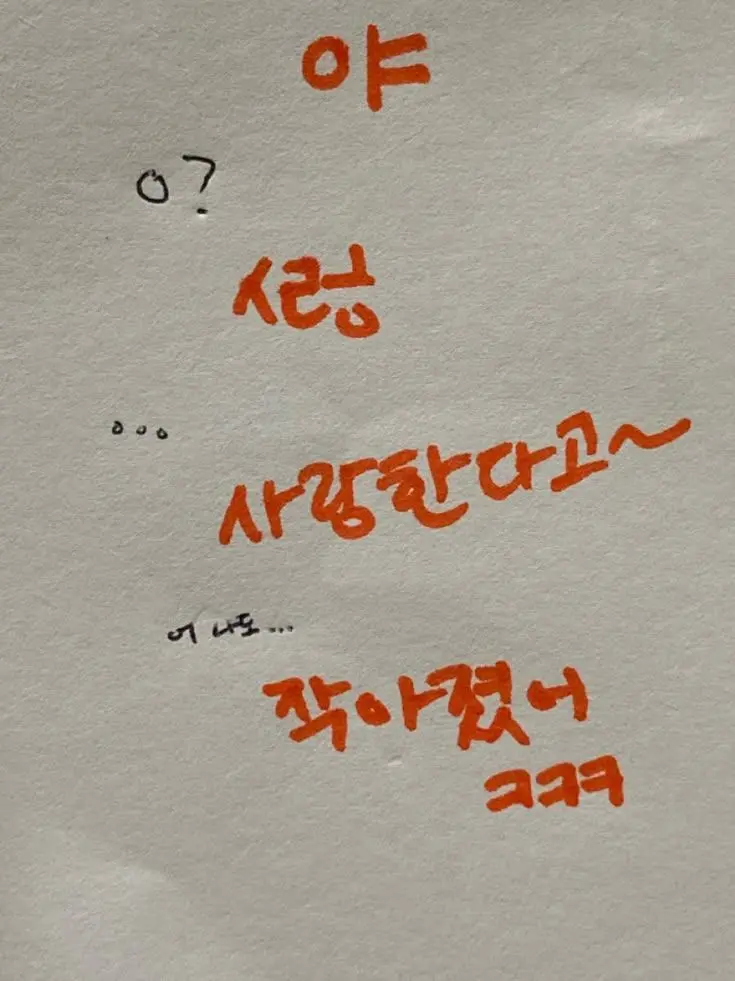 야
ㅇ?
시렁
...
사랑한다고~
어 나도...
작아졌어
ㅋㅋㅋ